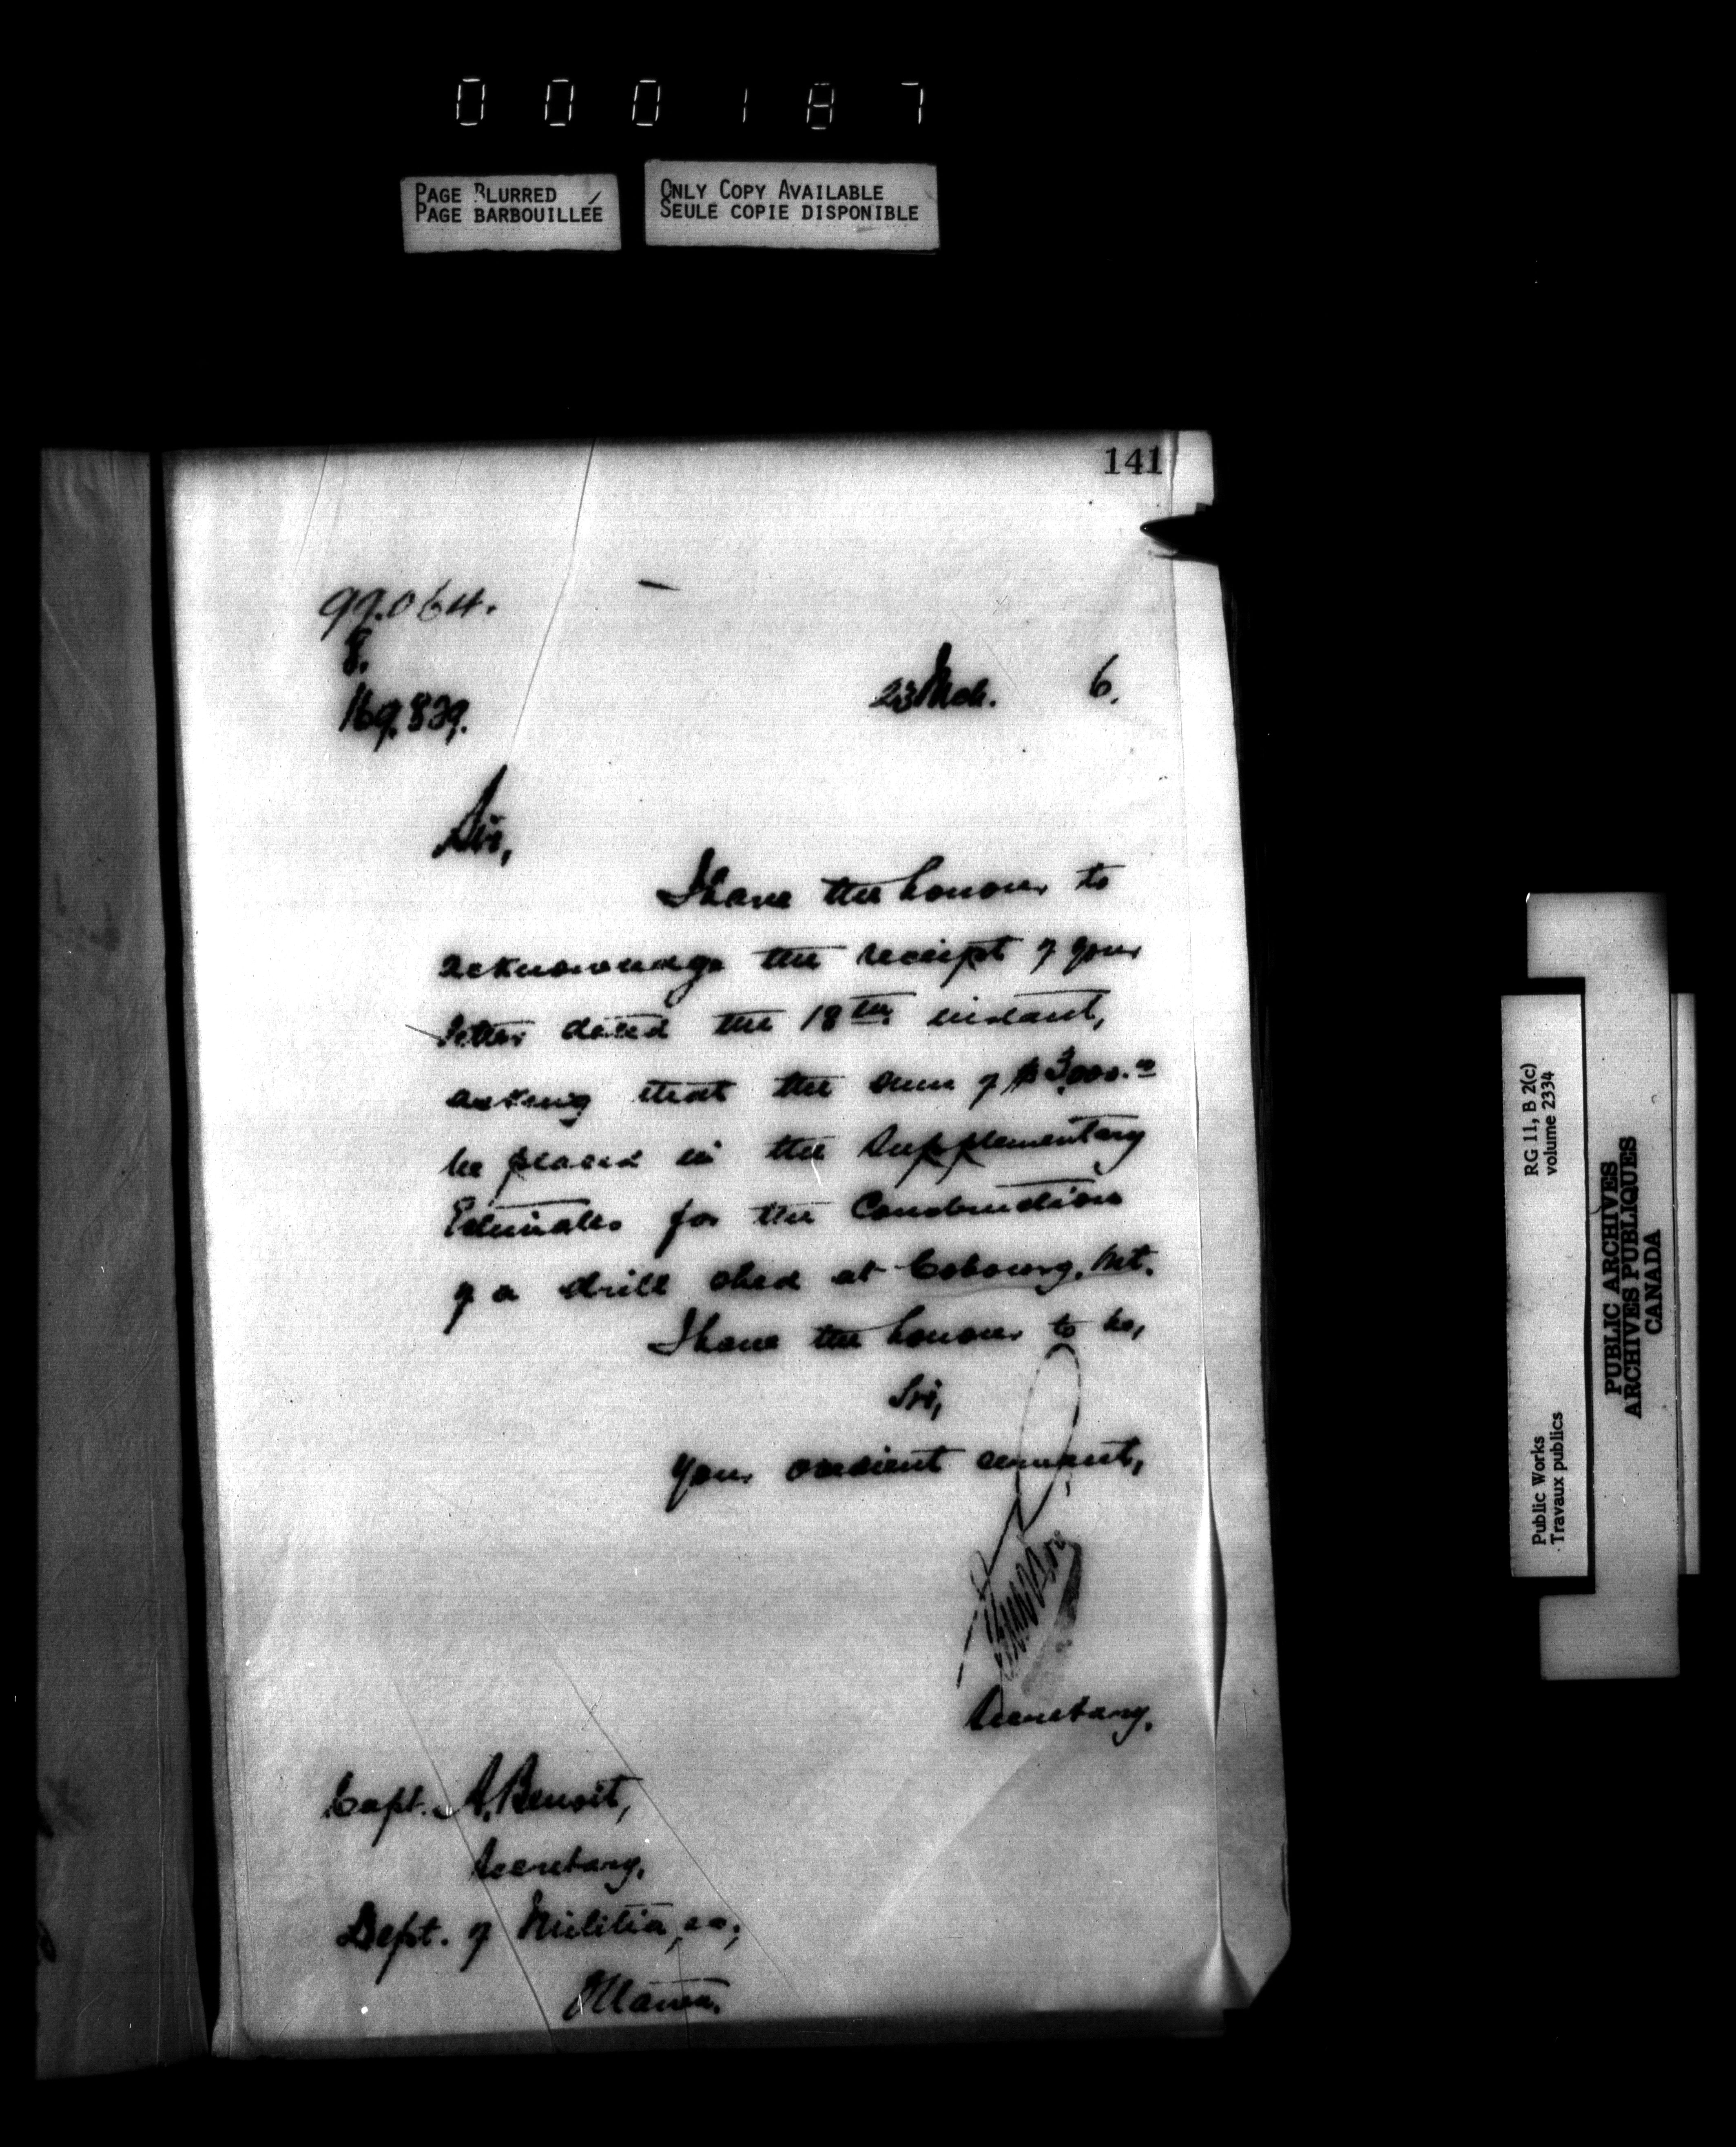 000187
PAGE BLURRED
PAGE BARBOUILLÉE
ONLY COPY AVAILABLE
SEULE COPIE DISPONIBLE
141
99.064.
169.839.
23 Mch. 6.
Sir,
I have the honour to
acknowledge the receipt of your
letter dated the 18th instant,
asking that the sum of $3,000.00
be placed in the Supplementary
Estimates for the Construction
of a drill shed at Cobourg, Ont.
I have the honour to be,
Sir,
Your obedient servant,
Secretary.
Capt. A. Benoit,
Secretary,
Dept. of Militia, &c;
Ottawa.
RG 11, B 2(c)
volume 2334
Public Works
Travaux publics
PUBLIC ARCHIVES
ARCHIVES PUBLIQUES
CANADA